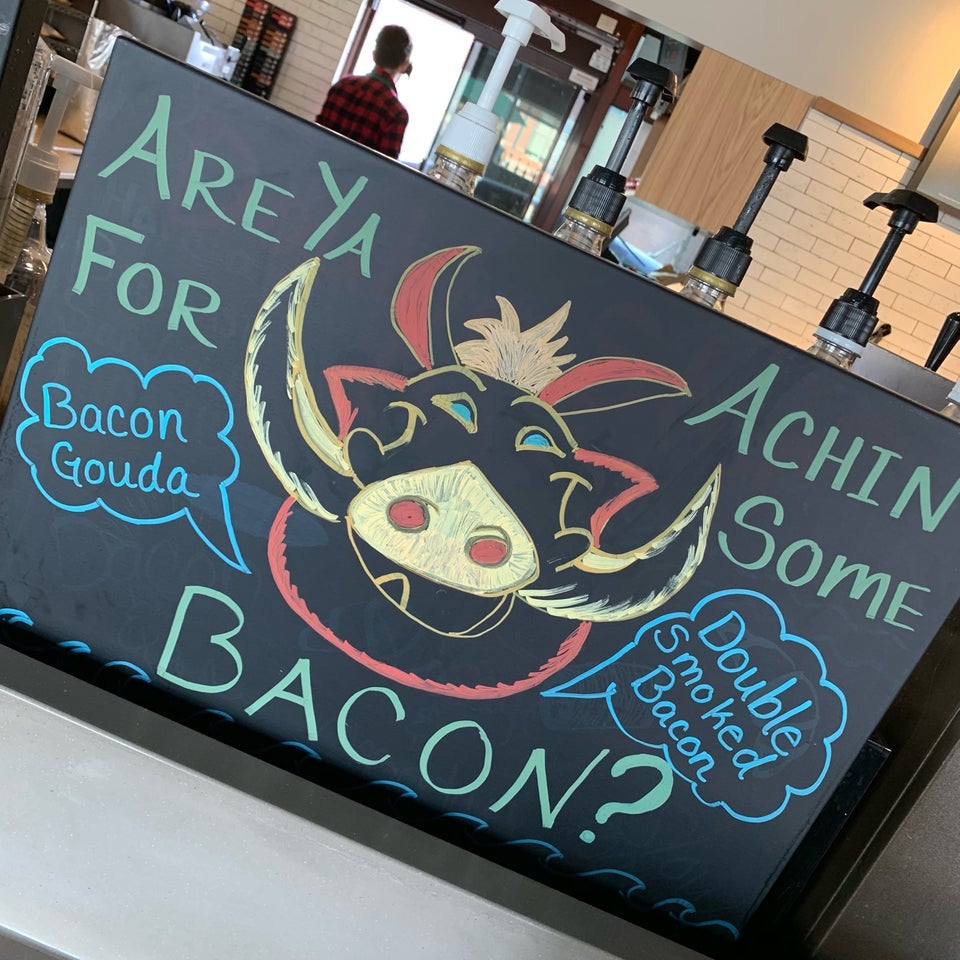 Are Ya
Achin
For
Some
Bacon?
Bacon
Gouda
Double
Smoked
Bacon